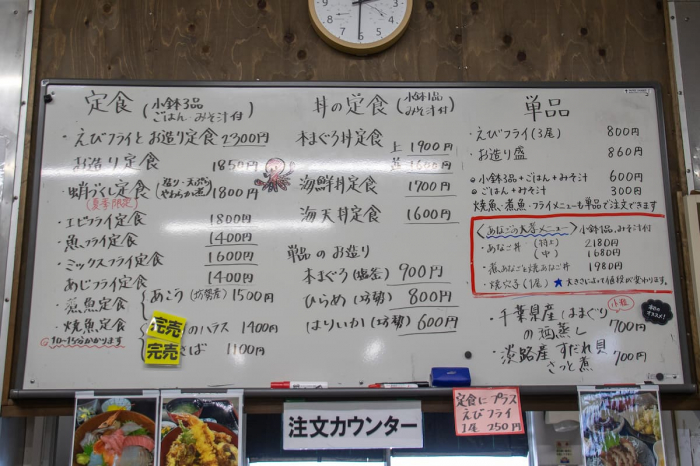 定食 (小鉢3品 ごはん・みそ汁付)
・えびフライとお造り定食 2300円
お造り定食 1850円
蛸づくし定食 (造り・天ぷら やわらか煮) 1800円
(夏季限定)
・エビフライ定食 1800円
・魚フライ定食 1400円
・ミックスフライ定食 1600円
あじフライ定食 1400円
・煮魚定食 あこう(坊勢産) 1500円
・焼魚定食 のハラス 1400円
10〜15分かかります
完売
完売 さば 1100円
丼の定食 (小鉢1品 みそ汁付)
本まぐろ丼定食 上 1900円
並 1600円
海鮮丼定食 1700円
海天丼定食 1600円
単品のお造り
本まぐろ 900円
ひらめ (坊勢) 800円
はりいか (坊勢) 600円
単品
・えびフライ (3尾) 800円
・お造り盛 860円
小鉢3品+ごはん+みそ汁 600円
ごはん+みそ汁 300円
焼魚・煮魚・フライメニューも単品で注文できます
小鉢1品、みそ汁付
・あなご丼 2180円
(中) 1680円
・煮あなごと焼あなご丼 1980円
・焼穴子 (1尾) ★大きさによって値段が変わります。
千葉県産 はまぐりの酒蒸し 700円
小粒
・淡路産 すだれ貝 さっと煮 700円
本日のオススメ!
注文カウンター
定食にプラス
えびフライ
1尾 250円